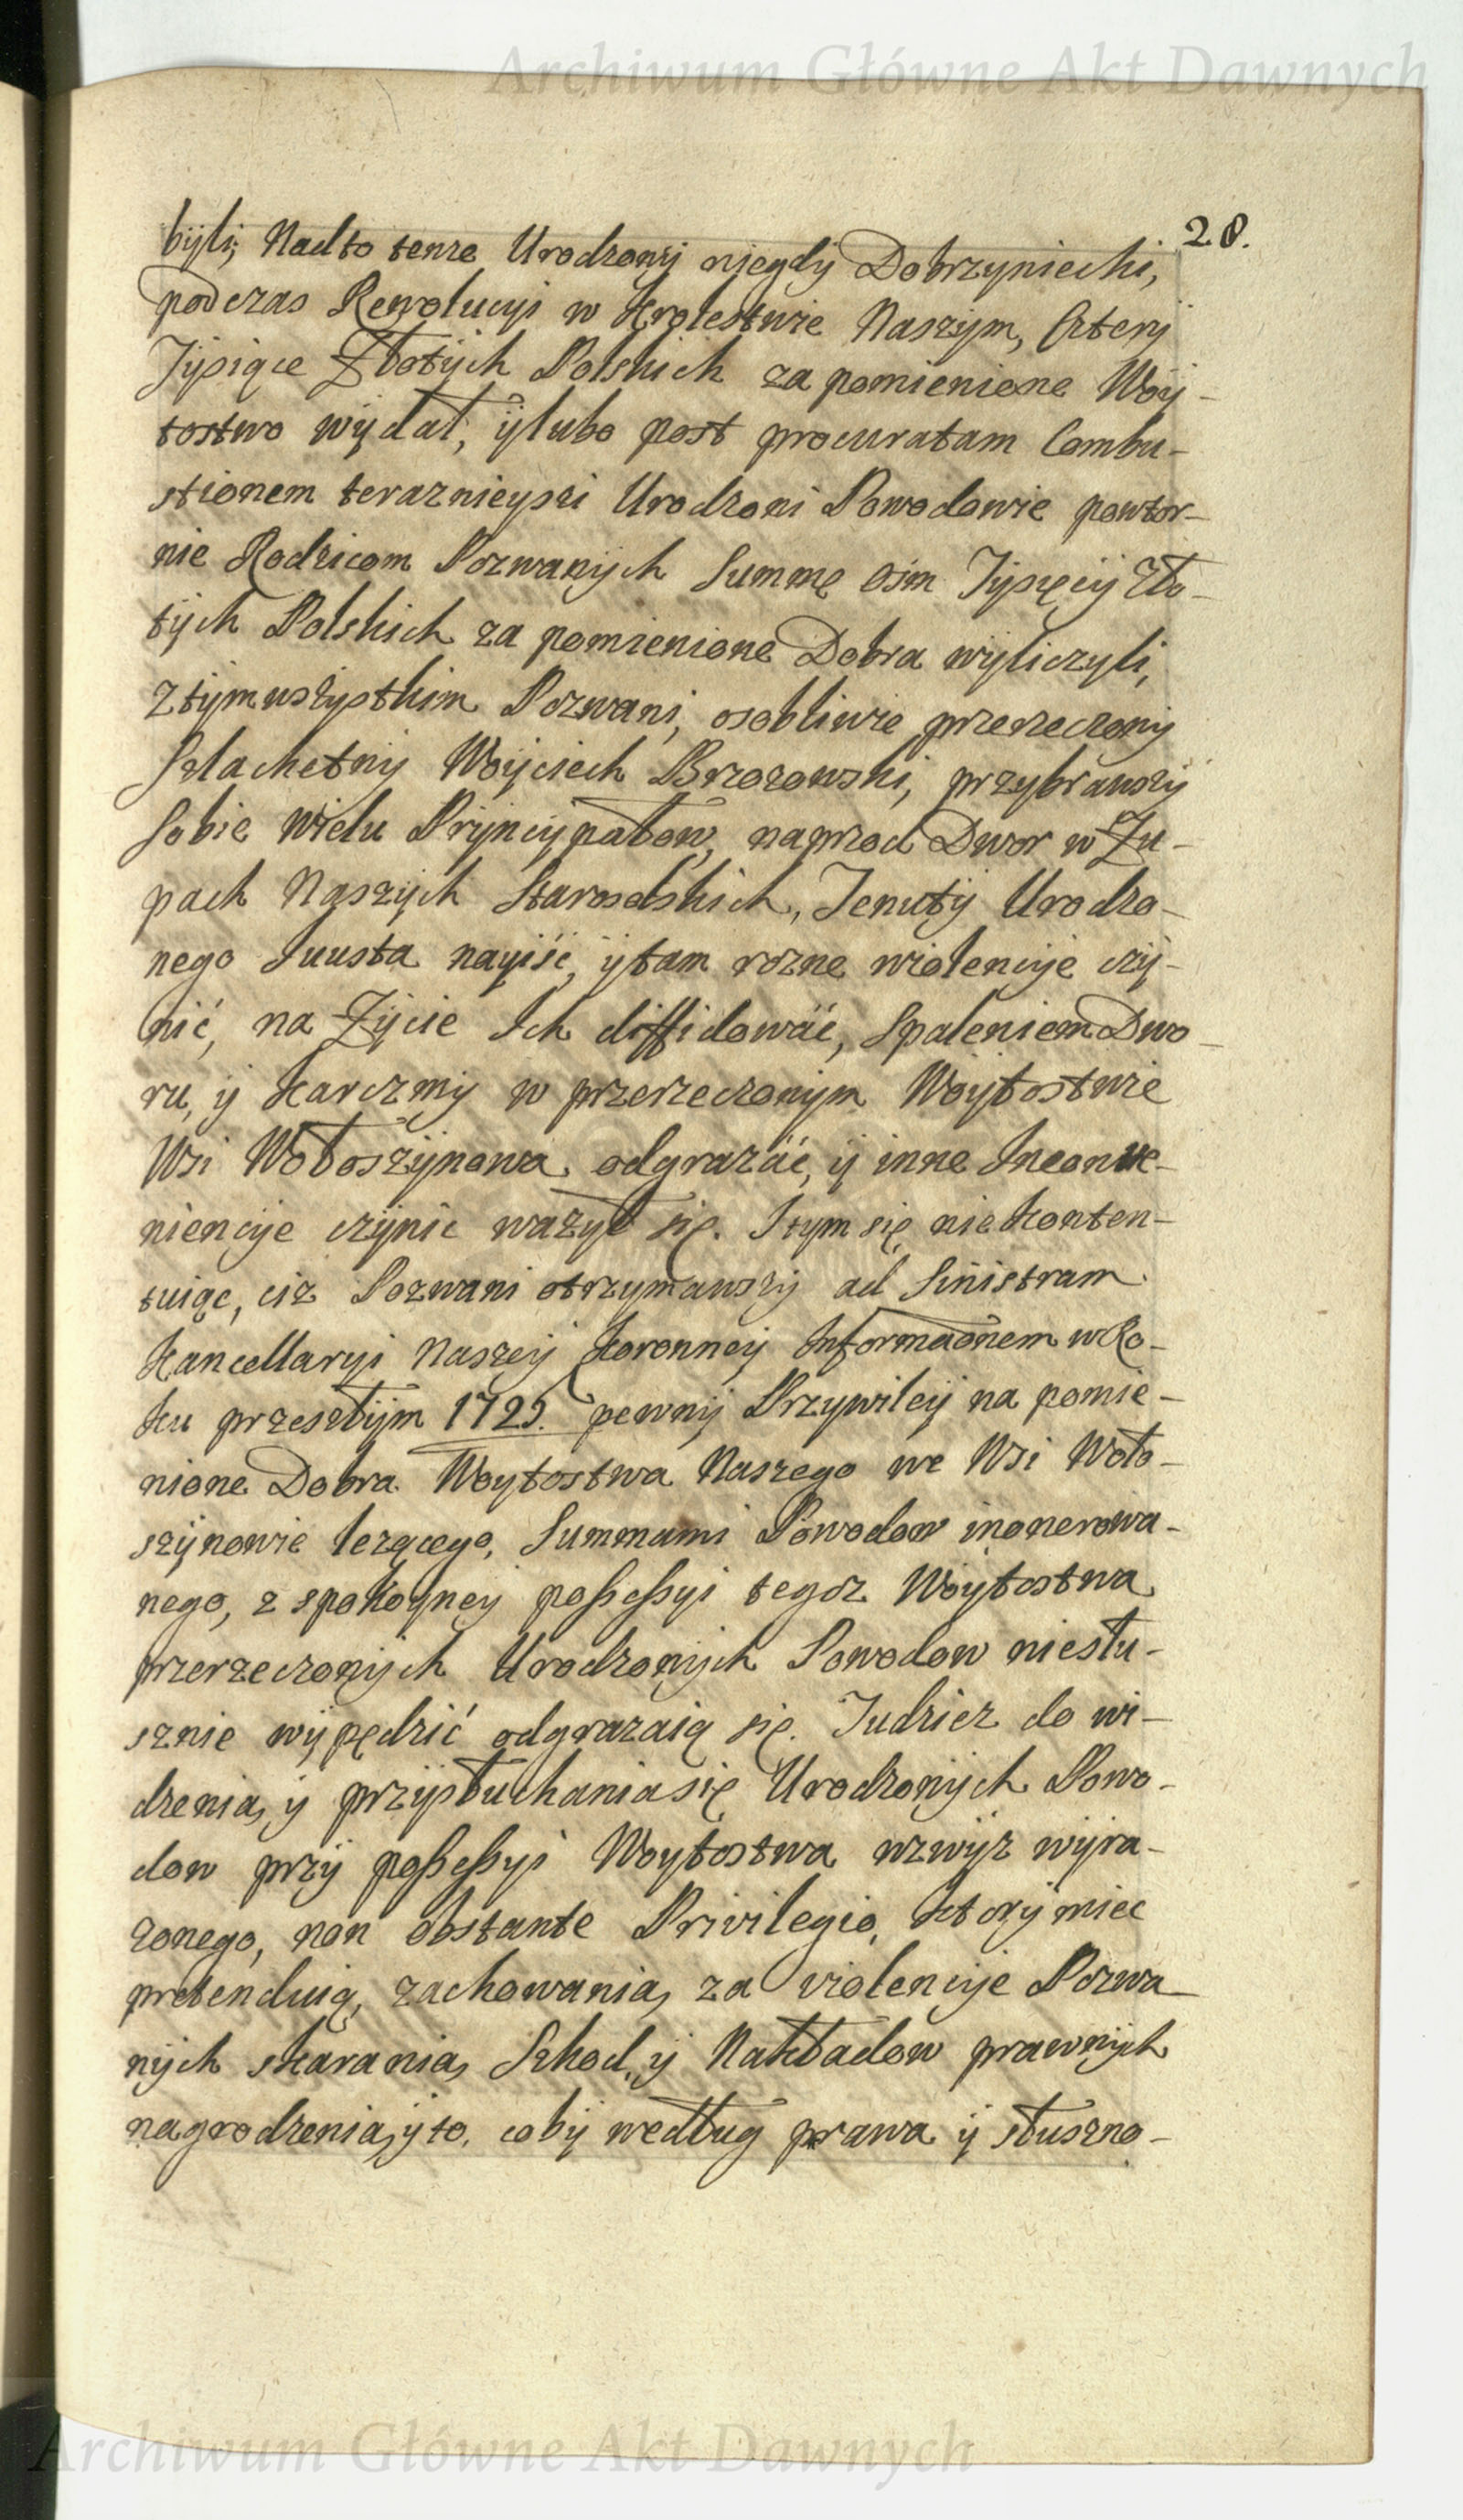 Archiwum Główne Akt Dawnych
28.
byli, Nadto tenze Urodzony niegdy Dobrzyniecki,
podczas Rewolucyi w Krolestwie Naszym, Cztery
Tysiące Złotych Polskich za pomienione Woy-
tostwo wydał, y lubo post procuratam Combu-
stionem teraznieyszi Urodzoni Powodowie powtor-
nie Rodzicom Pozwanych Summę osm Tysięcy Zło-
tych Polskich za pomienione Dobra wyliczyli,
z tym wszystkim Pozwani, osobliwie przerzeczony
Szlachetny Woyciech Brzozowski, przybrawszy
Sobie wielu Pryncypałow, naprzod Dwor w Zu-
pach Naszych Starosolskich, Tenuty Urodzo-
nego Suusta nayiść, y tam rozne wiolencye czy-
nić, na Zycie Ich diffidowáć, Spaleniem Dwo-
ru, y Karczmy w przerzeczonym Woytostwie
Wsi Wołoszynowa odgrazáć, y inne Inconwe-
niencye czynic wazył się. I tym się nie konten-
tuiąc, ciz Pozwani otrzymawszy ad Sinistram
Kancellaryi Naszey Koronney Informaõnem w Ro-
ku przeszłym 1725. pewny Przywiley na pomie-
nione Dobra Woytostwa Naszego we Wsi Woło-
szynowie lezącego, Summami Powodow inonerowa-
nego, z spokoyney poßeßyi tegoz Woytostwa
przerzeczonych Urodzonych Powodow niesłu-
sznie wypędzić odgrazaią się. Tudziez do wi-
dzenia, y przysłuchania się Urodzonych Powo-
dow przy poßeßyi Woytostwa wzwyz wyra-
zonego, non obstante Privilegio, ktory miec
pretenduią, zachowania, za violencye Pozwa-
nych skarania, Szkod, y Nakładow prawnych
nagrodzenia, y to, coby według prawa y słuszno-
Archiwum Główne Akt Dawnych